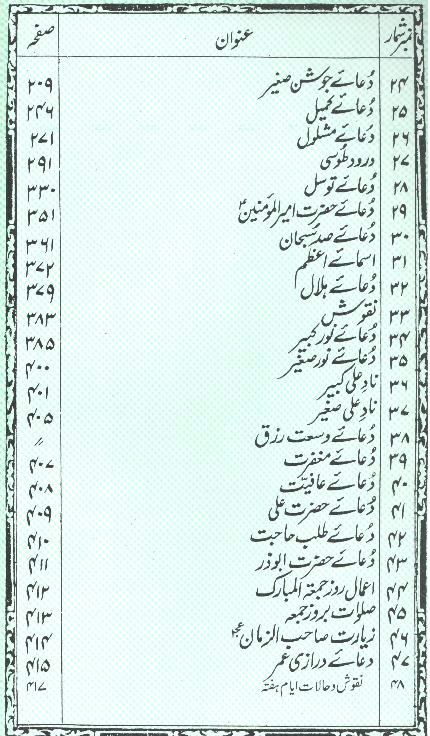 نمبر شمار عنوان صفحہ
۲۴ دُعائے جوشن صغیر ۲۰۹
۲۵ دُعائے کمیل ۲۴۶
۲۶ دُعائے مشلول ۲۷۱
۲۷ درود طوسی ۲۹۱
۲۸ دُعائے توسل ۳۳۰
۲۹ دُعائے حضرت امیرالمؤمنینؑ ۳۵۱
۳۰ دُعائے صد سُبحان ۳۶۱
۳۱ اسمائے اعظم ۳۷۲
۳۲ دُعائے ہلال ۳۷۹
۳۳ نقوش ۳۸۳
۳۴ دُعائے نور کبیر ۳۸۵
۳۵ دُعائے نور صغیر ۴۰۰
۳۶ نادِ علی کبیر ۴۰۱
۳۷ نادِ علی صغیر ۴۰۵
۳۸ دُعائے وسعت رزق //
۳۹ دُعائے مغفرت ۴۰۷
۴۰ دُعائے عافیت ۴۰۸
۴۱ دُعائے حضرت علی ۴۰۹
۴۲ دُعائے طلب حاجت ۴۱۰
۴۳ دُعائے حضرت ابوذر ۴۱۱
۴۴ اعمال روز جمعۃ المبارک ۴۱۲
۴۵ صلوات بروز جمعہ ۴۱۳
۴۶ زیارت صاحب الزمانؑ ۴۱۴
۴۷ دعائے درازی عمر ۴۱۵
۴۸ نقوش و حالات ایام ہفتہ ۴۱۷